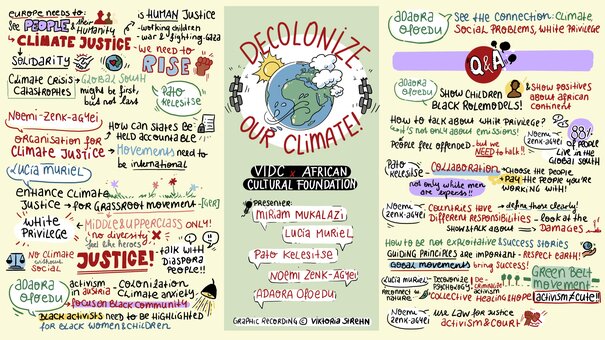 EUROPE NEEDS TO:
SEE PEOPLE & their Humanity
↳ CLIMATE JUSTICE
↳ SOLIDARITY
is HUMAN JUSTICE
- working children
- war & fighting
we need to
RISE
CLIMATE CRISIS
CATASTROPHES
GLOBAL SOUTH
might be first,
but not last
Pato
Kelesitse
NOEMI ZENK-AGYEI
HOW CAN STATES BE
HELD ACCOUNTABLE?
ORGANISATION FOR
CLIMATE JUSTICE
Movements need to
be international
LUCIA MURIEL
ENHANCE CLIMATE
JUSTICE → FOR GRASSROOT MOVEMENT [GER]
WHITE
PRIVILEGE
MIDDLE & UPPERCLASS ONLY!
no diversity
feel the heroes
NO CLIMATE
without
SOCIAL
JUSTICE!
- talk with
DIASPORA
PEOPLE!!
ADAORA
OFOEDU
activism
in austria
- COLONIZATION
CLIMATE anxiety
→ FOCUS ON BLACK COMMUNITY
BLACK ACTIVISTS NEED TO BE HIGHLIGHTED
FOR BLACK WOMEN & CHILDREN
DECOLONIZE
OUR CLIMATE!
VIDC x AFRICAN
CULTURAL FOUNDATION
PRESENTER:
MIRIAM MUKALAZI
LUCIA MURIEL
PATO KELESITSE
NOËMI ZENK-AGYEI
ADAORA OFOEDU
GRAPHIC RECORDING © VIKTORIA STREHN
ADAORA
OFOEDU
SEE THE CONNECTION: CLIMATE,
SOCIAL PROBLEMS, WHITE PRIVILEGE
Q&A
ADAORA
OFOEDU
SHOW CHILDREN
BLACK ROLEMODELS!
& SHOW POSITIVES
about african
CONTINENT
HOW TO TALK ABOUT WHITE PRIVILEGE?
↳ it's not only about emissions!
PEOPLE FEEL OFFENDED - but we
NEED to talk!!
NOEMI
ZENK-AGYEI
88% OF
PEOPLE
LIVE IN THE
GLOBAL SOUTH
PATO
KELESITSE
COLLABORATION
not only white men
are experts!!
→ CHOOSE THE PEOPLE
& PAY THE PEOPLE YOU'RE
WORKING WITH!
NOEMI
ZENK-AGYEI
COUNTRIES HAVE
DIFFERENT RESPONSIBILITIES
SHOW & TALK ABOUT
→ define those clearly!
- LOOK at the
DAMAGES
HOW TO BE NOT EXPLOITATIVE & SUCCESS STORIES
GUIDING PRINCIPLES are important - RESPECT EARTH!
GLOBAL MOVEMENTS bring success!
LUCIA MURIEL
RECONNECT TO
NATURE
- DECOLONIZE
PSYCHOLOGY!
DE-
CRIMINALISE
activism
COLLECTIVE HEALING & HOPE
GREEN BELT
MOVEMENT
activism ≠ cute!!
NOEMI
ZENK-AGYEI
USE LAW FOR JUSTICE
ACTIVISM & COURT